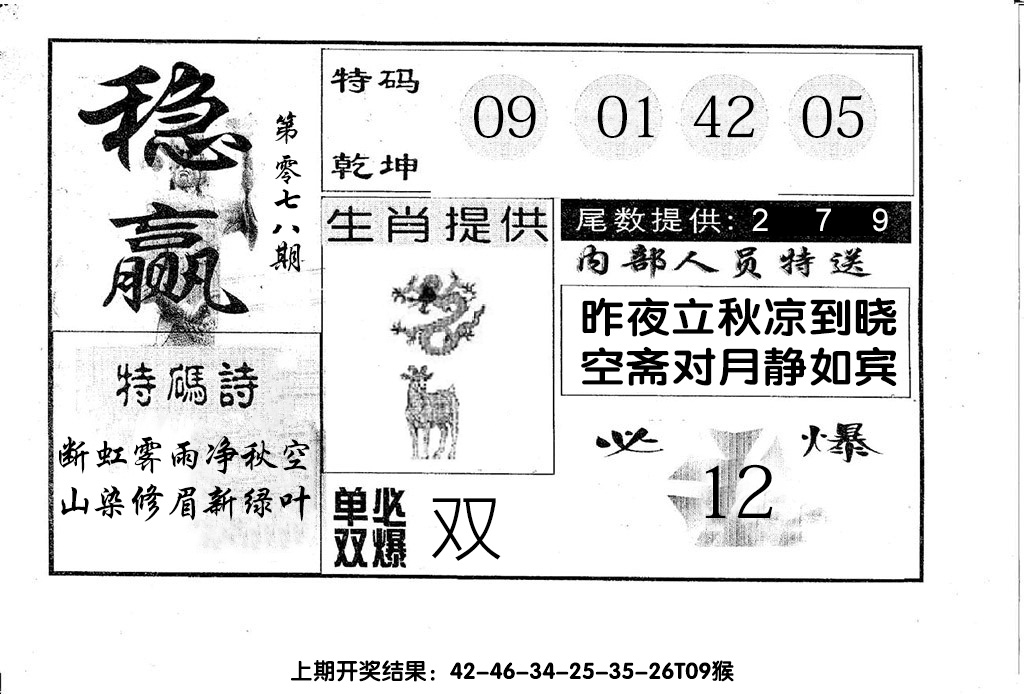 稳赢
第零七八期
特码
乾坤
09 01 42 05
生肖提供
尾数提供: 2 7 9
内部人员特送
昨夜立秋凉到晓
空斋对月静如宾
特碼詩
断虹霁雨净秋空
山染修眉新绿叶
单双必爆
双
必爆
12
上期开奖结果：42-46-34-25-35-26T09猴